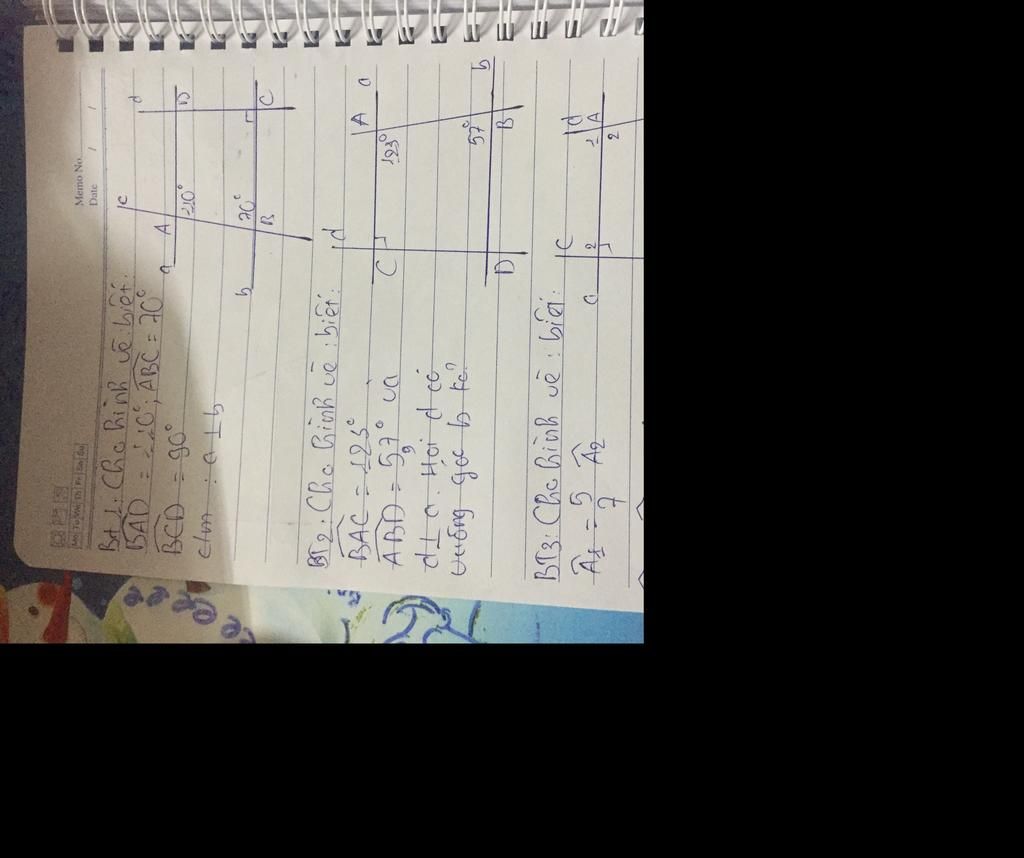 Memo No.
Date / /
Mo Tu We Th Fr Sa Su
Bt 1: Cho hình vẽ: biết:
BAD = 110°; ABC = 70°
BCD = 90°
c/m : a ⊥ b
c d
a A D
110°
70°
b B C
BT2: Cho hình vẽ: biết:
BAC = 123°
ABD = 57° và
d ⊥ a. Hỏi d có
vuông góc b ko?
d
C A a
123°
57°
D B b
BT3: Cho hình vẽ: biết:
A1 = 5 A2
7
C d
a 2 1 A
2